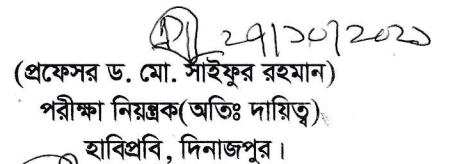 ২৭/১০/২০২১
(প্রফেসর ড. মো. সাইফুর রহমান)
পরীক্ষা নিয়ন্ত্রক(অতিঃ দায়িত্ব)
হাবিপ্রবি, দিনাজপুর।